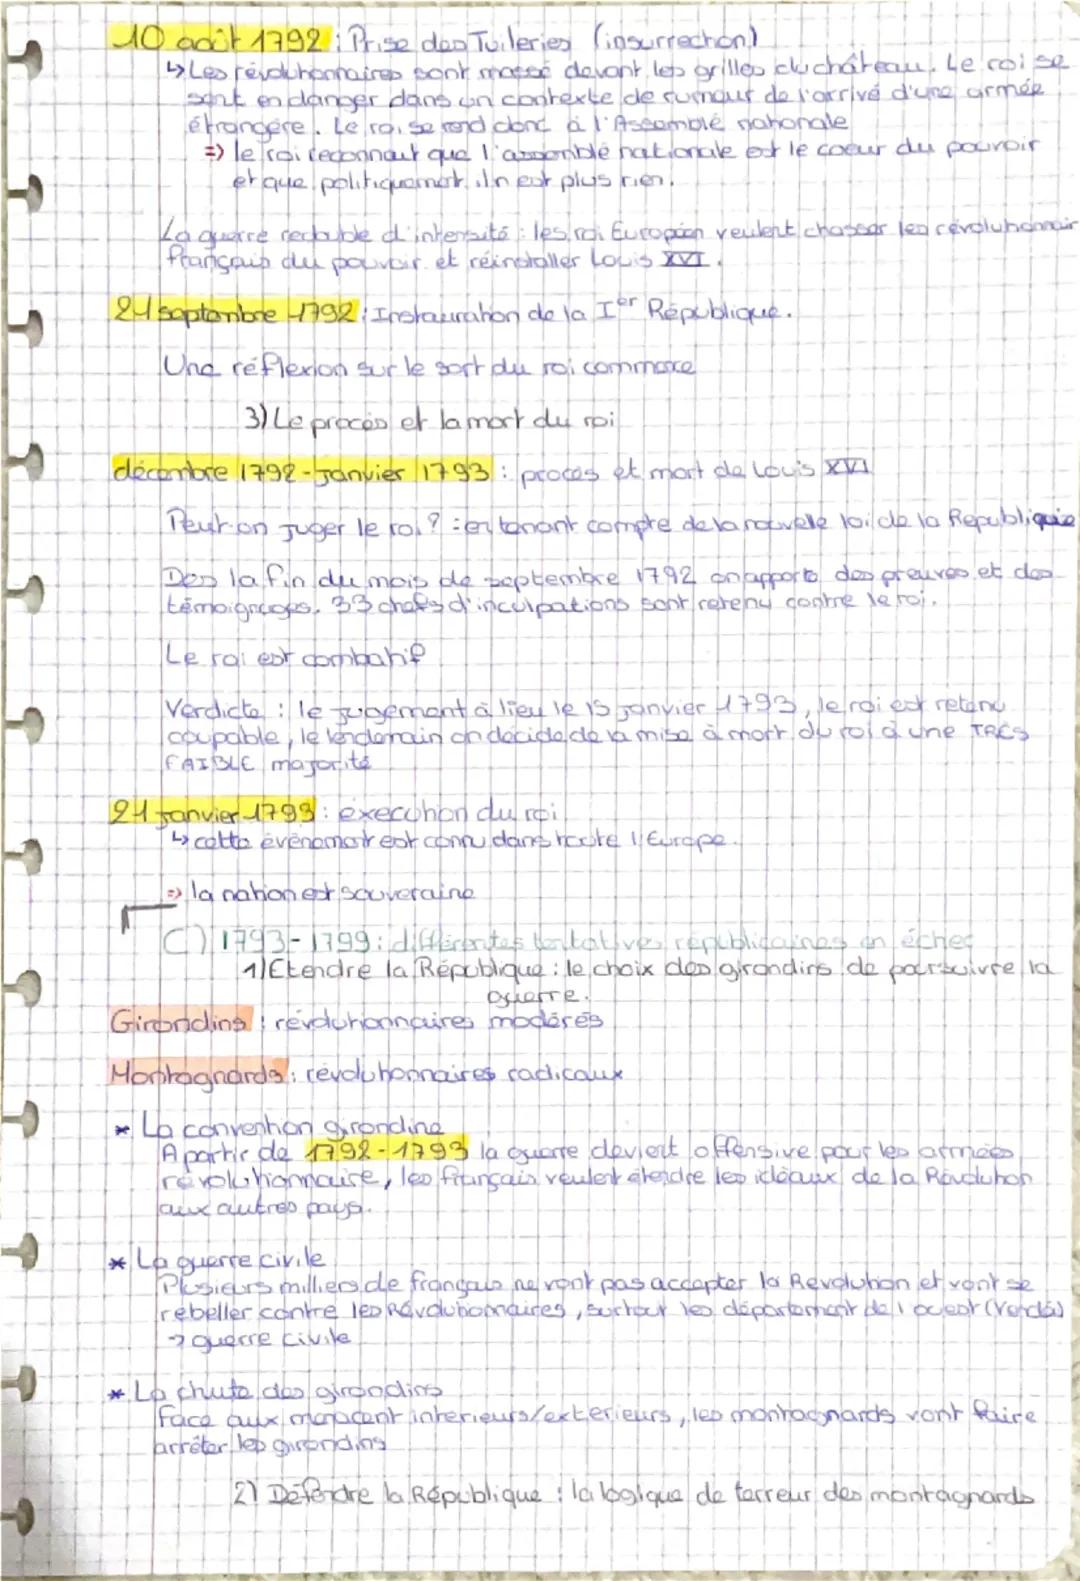 10 août 1792 : Prise des Tuileries (insurrection)
↳ Les révolutionnaires sont massé devant les grilles du château. Le roi se
sent en danger dans un contexte de rumeur de l'arrivé d'une armée
étrangère. Le roi se rend donc à l'Assemblé nationale
=> le roi reconnaut que l'assemblé nationale est le coeur du pouvoir
et que politiquement il n'est plus rien.
La guerre redouble d'intensité : les roi Européen veulent chasser les révolutionnair
français du pouvoir et réinstaller Louis XVI.
21 septembre 1792 : Instauration de la Ier République.
Une réflexion sur le sort du roi commence
3) Le procès et la mort du roi
décembre 1792 - Janvier 1793 : procès et mort de Louis XVI
Peut on juger le roi ? : en tenant compte de la nouvelle loi de la République
Des la fin du mois de septembre 1792 on apporte des preuves et des
témoignages. 33 chefs d'inculpations sont retenu contre le roi.
Le roi est combatif
Verdicte : le jugement à lieu le 15 janvier 1793, le roi est retenu
coupable, le lendemain on décide de la mise à mort du roi à une TRES
FAIBLE majorité
21 janvier 1793 : execution du roi
↳ cette évènement est connu dans toute l'Europe.
=> la nation est souveraine
C) 1793-1799 : différentes tentatives républicaines en échec
1) Etendre la République : le choix des girondins de poursuivre la
guerre.
Girondins : révolutionnaires modérés
Montagnards : révolutionnaires radicaux
* La convention girondine
A partir de 1792-1793 la guerre devient offensive pour les armées
révolutionnaire, les français veulent étendre les idéaux de la Révolution
aux autres pays.
* La guerre civile
Plusieurs milliers de français ne vont pas accepter la Révolution et vont se
rebeller contre les Révolutionnaires, surtout les département de l'ouest (Vendée)
→ guerre civile
* La chute des girondins
Face aux menacent intérieurs/extérieurs, les montagnards vont faire
arrêter les girondins
2) Défendre la République : la logique de terreur des montagnards